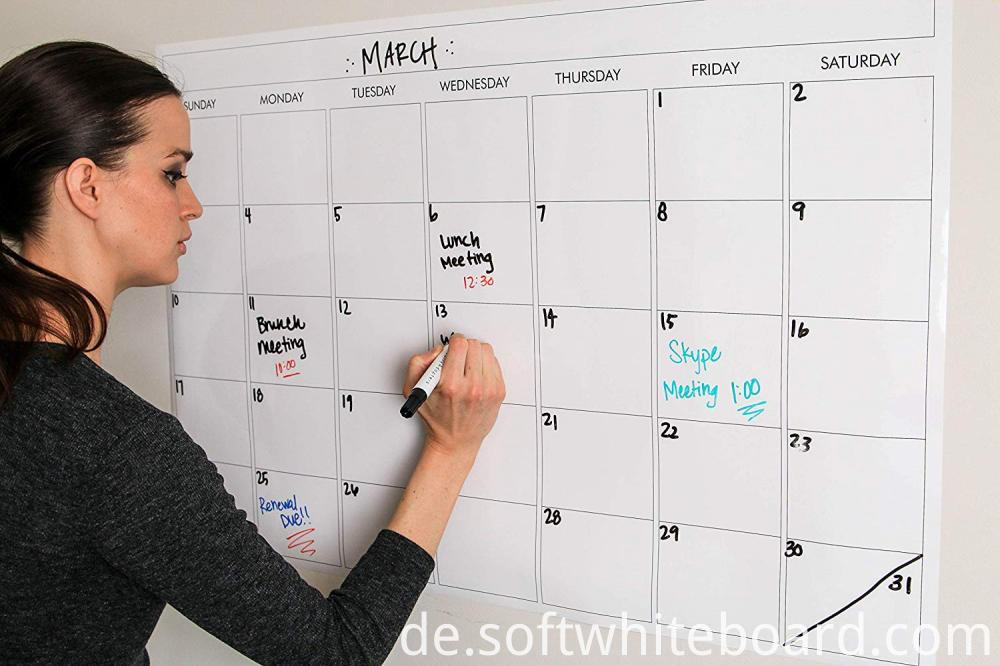 MARCH
SUNDAY MONDAY TUESDAY WEDNESDAY THURSDAY FRIDAY SATURDAY
1 2
4 5 6 7 8 9
Lunch
Meeting
12:30
10 11 12 13 14 15 16
Brunch
Meeting
11:00
Skype
Meeting 1:00
17 18 19 21 22 23
25 26 28 29 30 31
Renewal
DUE!!
de.softwhiteboard.com